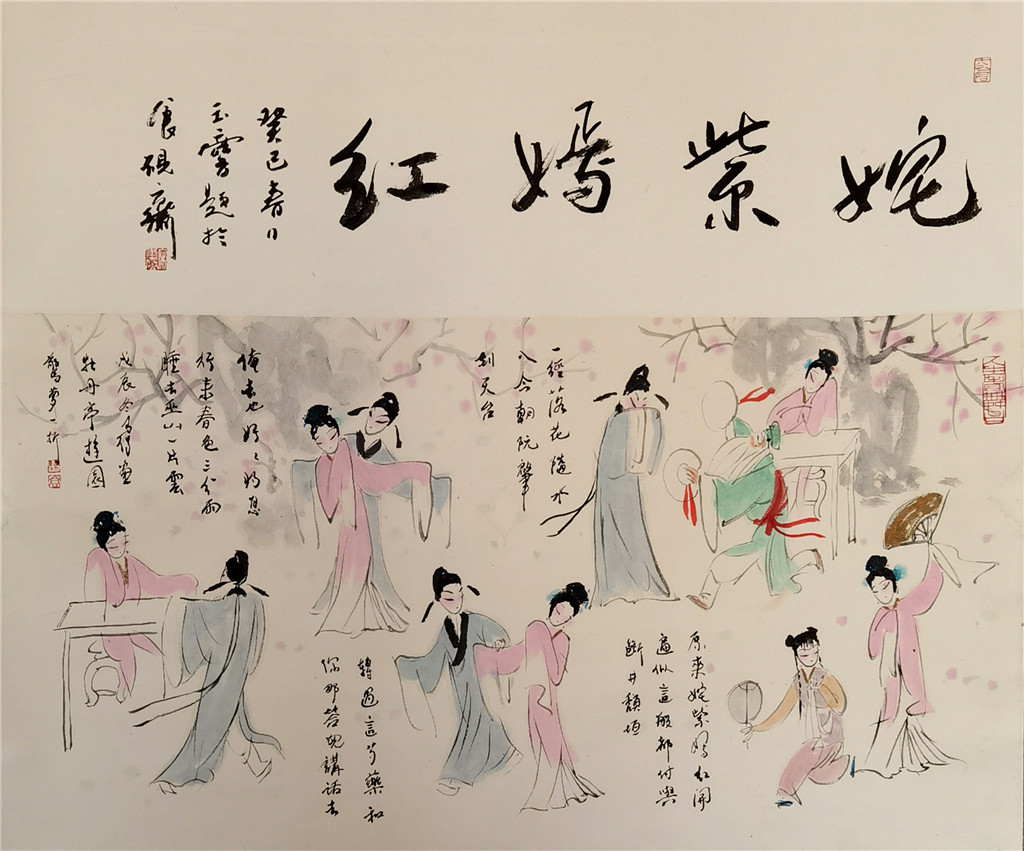 姹紫嫣红
癸巳春日
題於
硯齋
原來姹紫嫣紅開
遍似這般都付與
斷井頹垣
一徑落花隨水
入今朝阮肇
到天台
轉過這芍藥和
你那答兒講話去
俺去也姐々
行來春色三分雨
睡去巫山一片雲
戊辰冬畫
牡丹亭遊園
驚夢一折